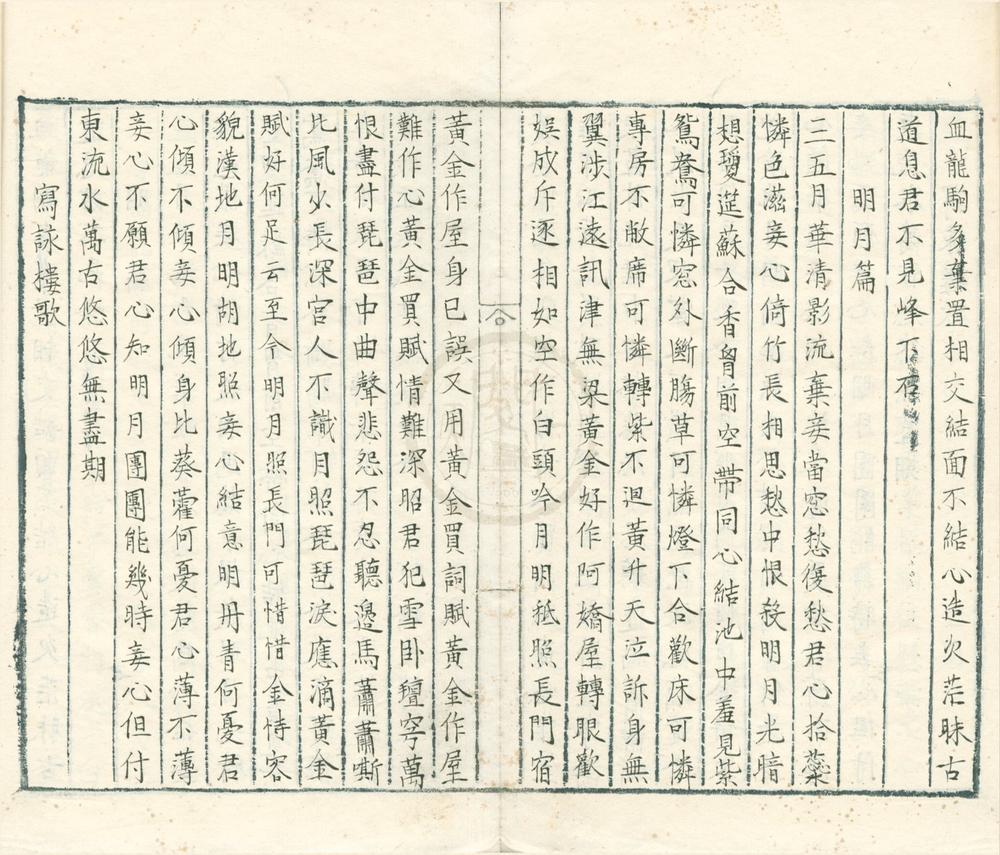 血龍駒多棄置相交結面不結心造次茫昧古
道息君不見峰下石
明月篇
三五月華清影流棄妾當窓愁復愁君心拾蘂
憐色滋妾心倚竹長相思愁中恨殺明月光暗
想瓊莚蘇合香胷前空帶同心結池中羞見紫
鴛鴦可憐窓外斷膓草可憐燈下合歡床可憐
專房不敝席可憐轉紫不迴黃升天泣訴身無
翼涉江遠訊津無梁黃金好作阿嬌屋轉眼歡
娛成斥逐相如空作白頭吟月明秪照長門宿
黃金作屋身已誤又用黃金買詞賦黃金作屋
難作心黃金買賦情難深昭君犯雪卧氊穹萬
恨盡付琵琶中曲聲悲怨不忍聽邊馬蕭蕭嘶
北風少長深宮人不識月照琵琶淚應滴黃金
賦好何足云至今明月照長門可惜惜金恃容
貌漢地月明胡地照妾心結意明丹青何憂君
心傾不傾妾心傾身比葵藿何憂君心薄不薄
妾心不願君心知明月團團能幾時妾心但付
東流水萬古悠悠無盡期
寫詠樓歌